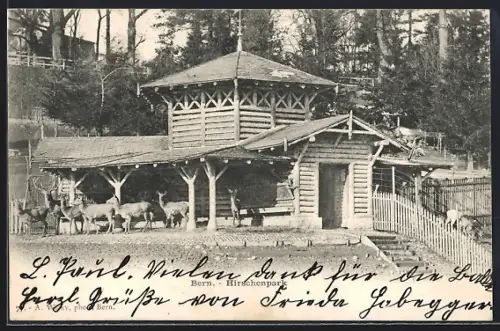 Bern. - Hirschenpark
L. Paul. Vielen dank für die
Herzl. Grüße von Frieda Habegger
phot. Bern.